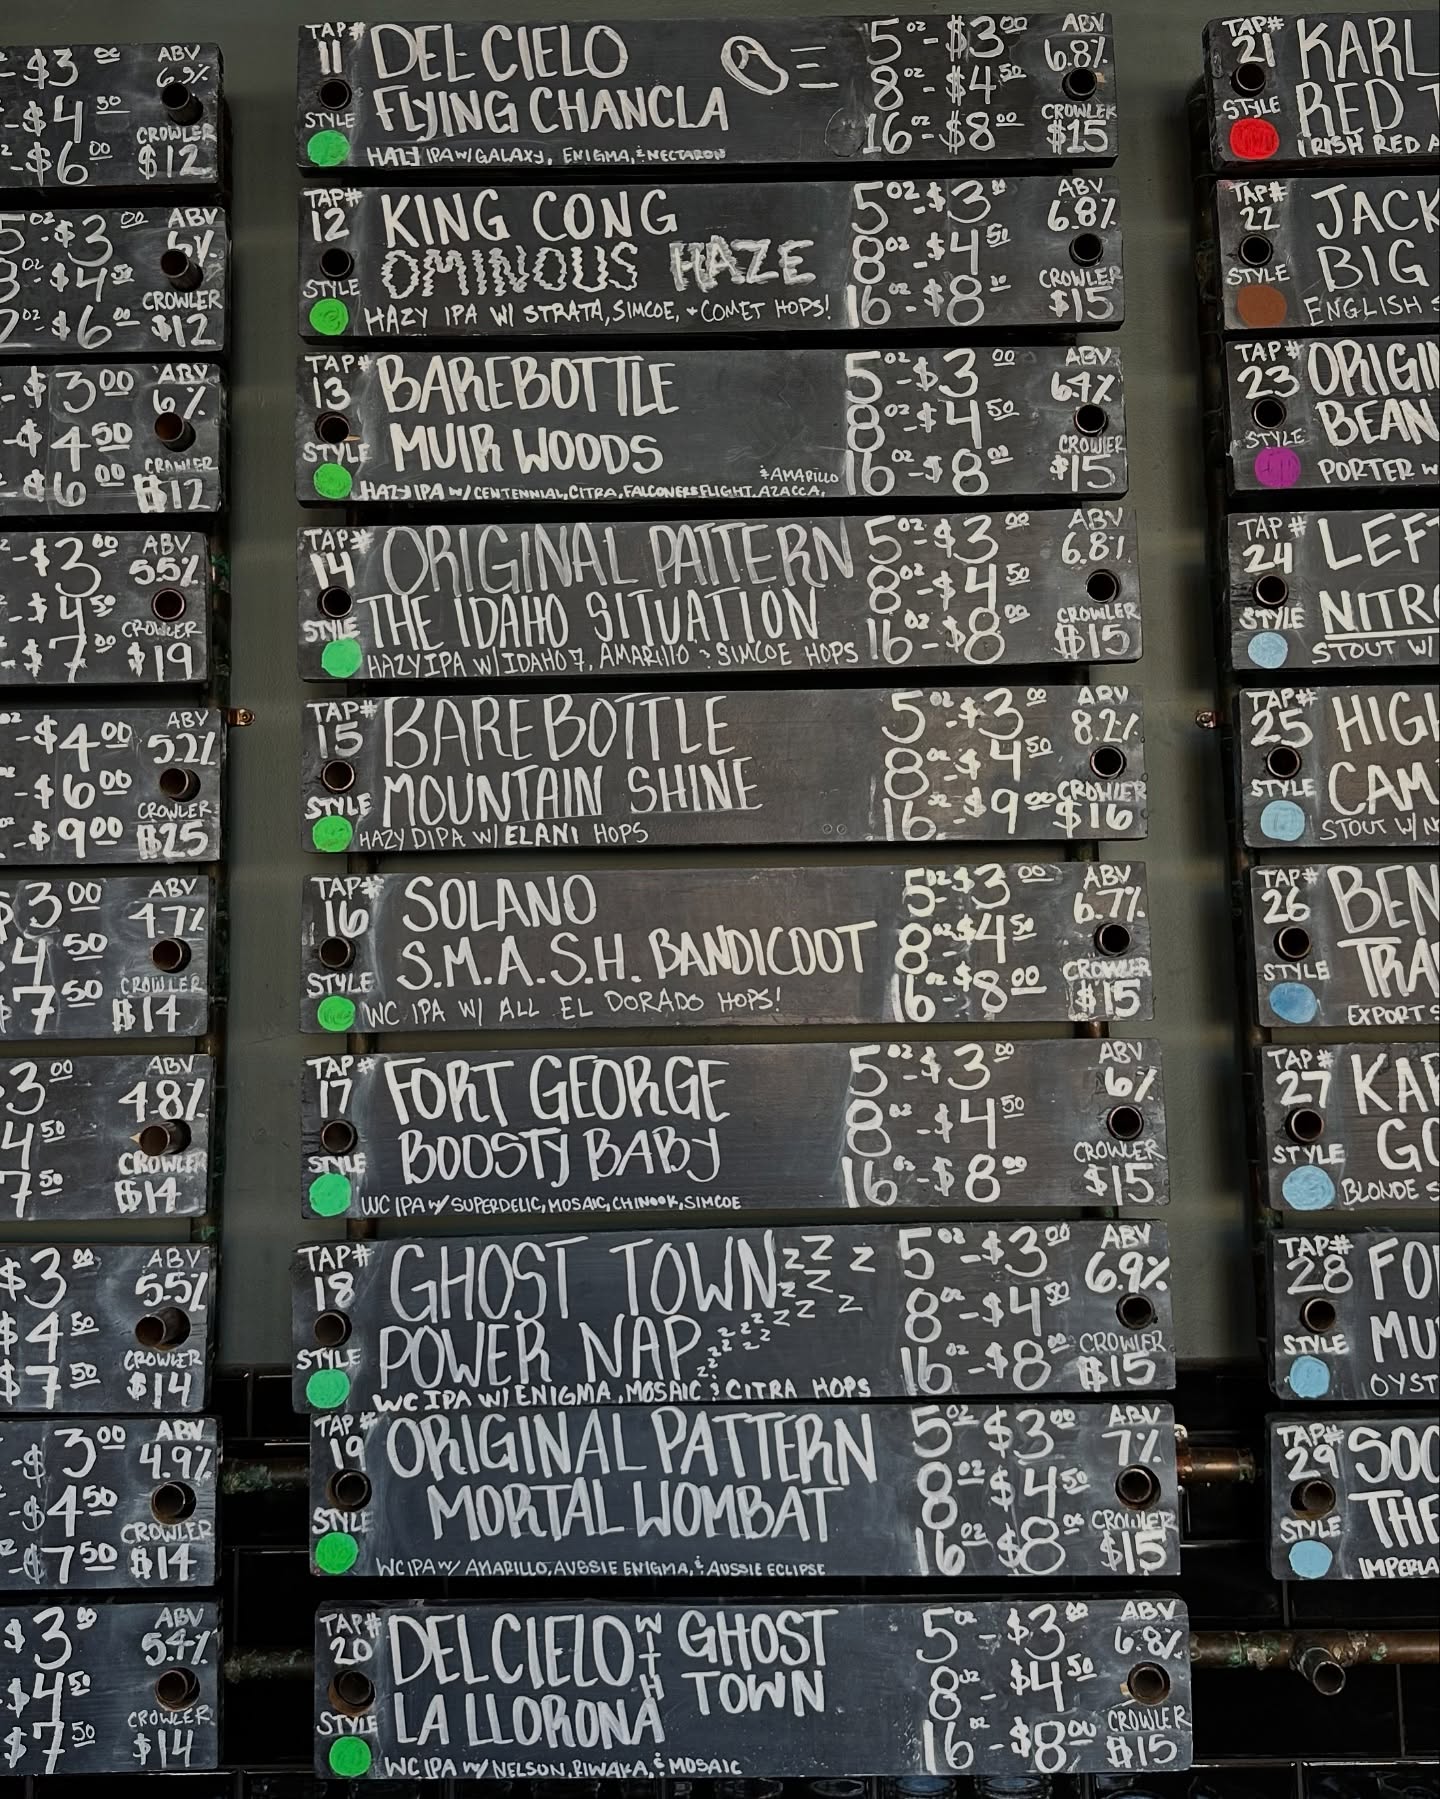 -$3 00 ABV 6.9%
-$4 50 CROWLER
-$6 00 $12
5 oz-$3 00 ABV 6%
8 oz-$4 50 CROWLER
2 oz-$6 00 $12
-$3 00 ABV 6%
-$4 50 CROWLER
-$6 00 $12
-$3 00 ABV 5.5%
-$4 50 CROWLER
-$7 00 $19
-$4 00 ABV 5.2%
-$6 00 CROWLER
-$9 00 $25
$3 00 ABV 4.7%
4 50 CROWLER
7 50 $14
3 00 ABV 4.8%
4 50 CROWLER
7 50 $14
$3 00 ABV 5.5%
$4 50 CROWLER
$7 50 $14
-$3 00 ABV 4.9%
-$4 50 CROWLER
-$7 50 $14
$3 00 ABV 5.4%
$4 50 CROWLER
$7 50 $14
TAP# 11
STYLE
DEL CIELO
FLYING CHANCLA
HAZY IPA W/ GALAXY, ENIGMA, & NECTARON
5 oz-$3 00
8 oz-$4 50
16 oz-$8 00
ABV 6.8%
CROWLER $15
TAP# 12
STYLE
KING CONG
OMINOUS HAZE
HAZY IPA W/ STRATA, SIMCOE, + COMET HOPS!
5 oz-$3 00
8 oz-$4 50
16 oz-$8 00
ABV 6.8%
CROWLER $15
TAP# 13
STYLE
BAREBOTTLE
MUIR WOODS
HAZY IPA W/ CENTENNIAL, CITRA, FALCONERS FLIGHT, AZACCA,
& AMARILLO
5 oz-$3 00
8 oz-$4 50
16 oz-$8 00
ABV 6.4%
CROWLER $15
TAP# 14
STYLE
ORIGINAL PATTERN
THE IDAHO SITUATION
HAZY IPA W/ IDAHO 7, AMARILLO & SIMCOE HOPS
5 oz-$3 00
8 oz-$4 50
16 oz-$8 00
ABV 6.8%
CROWLER $15
TAP# 15
STYLE
BAREBOTTLE
MOUNTAIN SHINE
HAZY DIPA W/ ELANI HOPS
5 oz-$3 00
8 oz-$4 50
16 oz-$9 00
ABV 8.2%
CROWLER $16
TAP# 16
STYLE
SOLANO
S.M.A.S.H. BANDICOOT
WC IPA W/ ALL EL DORADO HOPS!
5 oz-$3 00
8 oz-$4 50
16 oz-$8 00
ABV 6.7%
CROWLER $15
TAP# 17
STYLE
FORT GEORGE
BOOSTY BABY
WC IPA W/ SUPERDELIC, MOSAIC, CHINOOK, SIMCOE
5 oz-$3 00
8 oz-$4 50
16 oz-$8 00
ABV 6%
CROWLER $15
TAP# 18
STYLE
GHOST TOWN ZZZ Z
POWER NAP
WC IPA W/ ENIGMA, MOSAIC & CITRA HOPS
5 oz-$3 00
8 oz-$4 50
16 oz-$8 00
ABV 6.9%
CROWLER $15
TAP# 19
STYLE
ORIGINAL PATTERN
MORTAL WOMBAT
WC IPA W/ AMARILLO, AUSSIE ENIGMA, & AUSSIE ECLIPSE
5 oz $3 00
8 oz $4 50
16 oz $8 00
ABV 7%
CROWLER $15
TAP# 20
STYLE
DEL CIELO WITH GHOST TOWN
LA LLORONA
WC IPA W/ NELSON, RIWAKA, & MOSAIC
5 oz-$3 00
8 oz-$4 50
16 oz-$8 00
ABV 6.8%
CROWLER $15
TAP# 21
STYLE
KARL
RED T
IRISH RED A
TAP# 22
STYLE
JACK
BIG
ENGLISH S
TAP# 23
STYLE
ORIGIN
BEAN
PORTER W
TAP# 24
STYLE
LEF
NITRO
STOUT W/
TAP# 25
STYLE
HIGH
CAM
STOUT W/
TAP# 26
STYLE
BEN
TRA
EXPORT S
TAP# 27
STYLE
KA
GO
BLONDE S
TAP# 28
STYLE
FO
MU
OYST
TAP# 29
STYLE
SOC
THE
IMPERIA